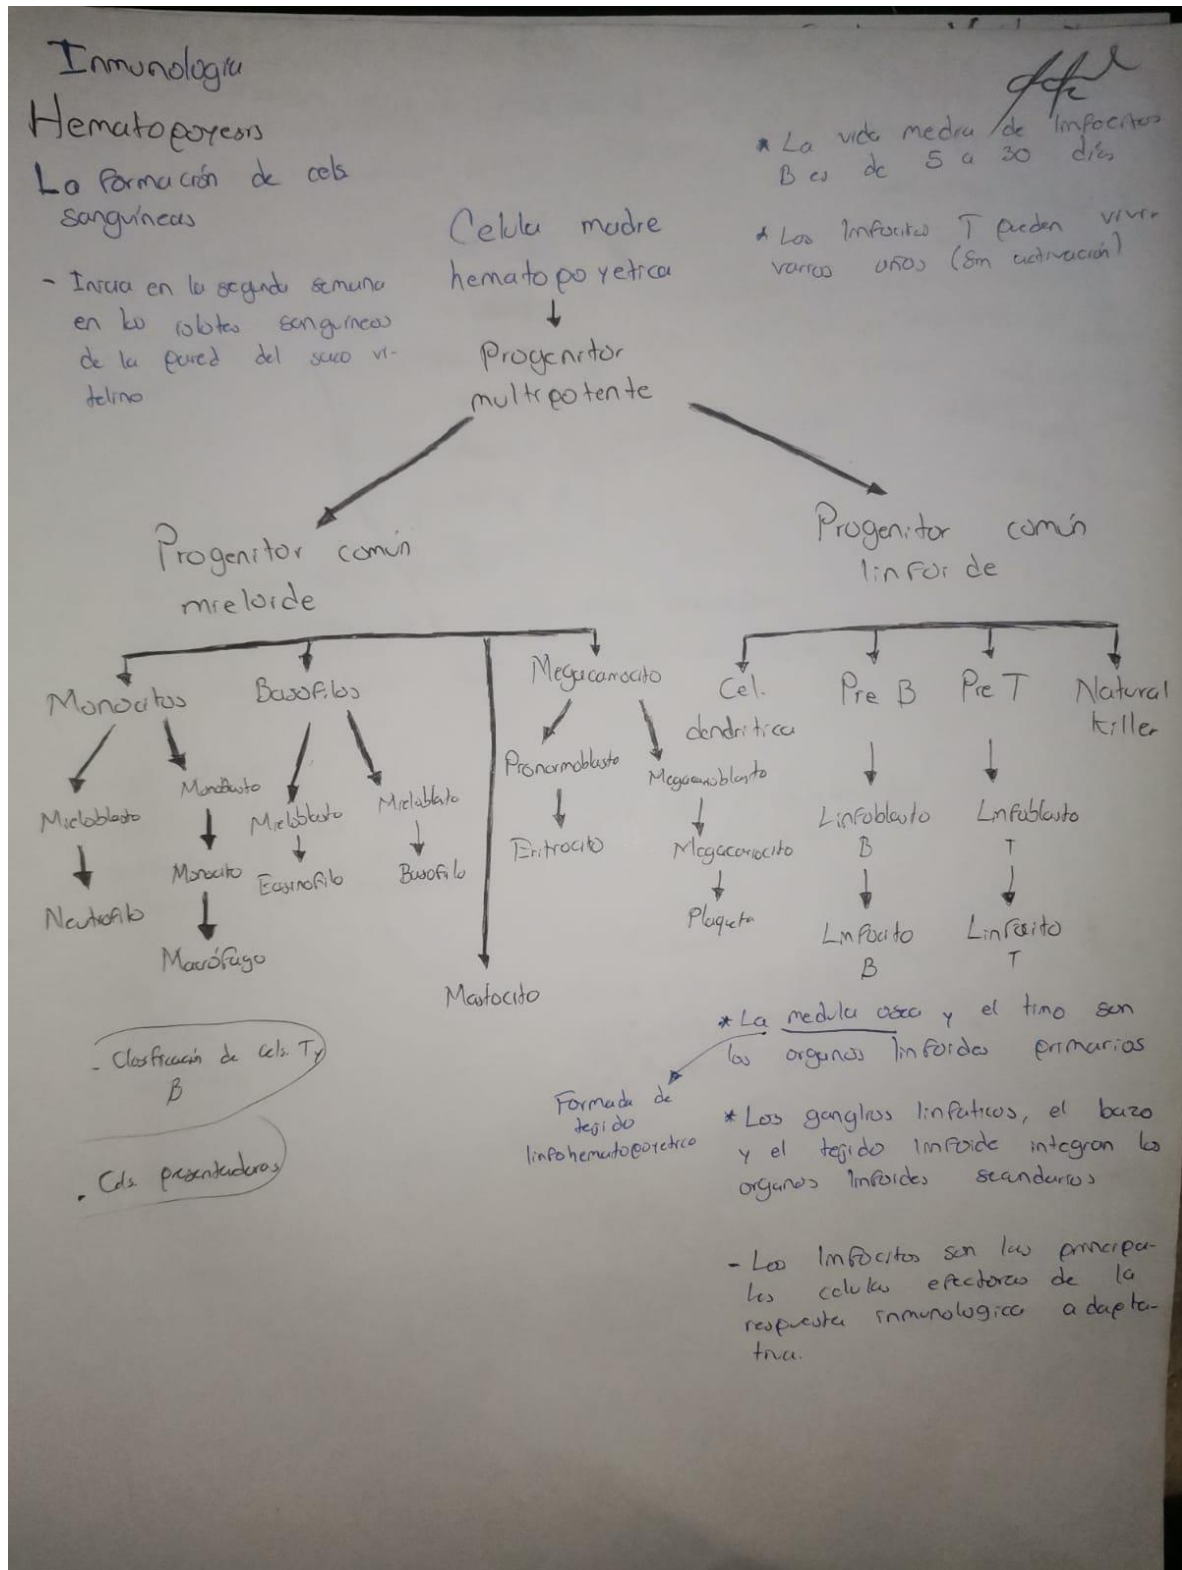 Inmunologia
Hematopoyesis
La formación de cels
sanguíneas
- Inicia en la segunda semana
en los islotes sanguíneos
de la pared del saco vi-
telino
* La vida media de linfocitos
B es de 5 a 30 días
* Los linfocitos T pueden vivir
varios años (Sin activación)
Celula madre
hematopoyetica
Progenitor
multipotente
Progenitor común
mieloide
Progenitor común
linfoide
Monocitos
Basofilos
Megacariocito
Cel.
dendritica
Pre B
Pre T
Natural
killer
Mieloblasto
Neutrofilo
Monoblasto
Monocito
Macrófago
Mieloblasto
Eosinofilo
Mieloblasto
Basofilo
Mastocito
Pronormoblasto
Eritrocito
Megacarioblasto
Megacariocito
Plaqueta
Linfoblasto
B
Linfocito
B
Linfoblasto
T
Linfocito
T
- Clasificación de cels. T y
B
. Cels. presentadoras
* La medula osea y el timo son
los organos linfoides primarios
Formada de
tejido
linfohematopoyetico
* Los ganglios linfaticos, el bazo
y el tejido linfoide integran los
organos linfoides secundarios
- Los linfocitos son las principa-
les celulas efectoras de la
respuesta inmunologica adapta-
tiva.